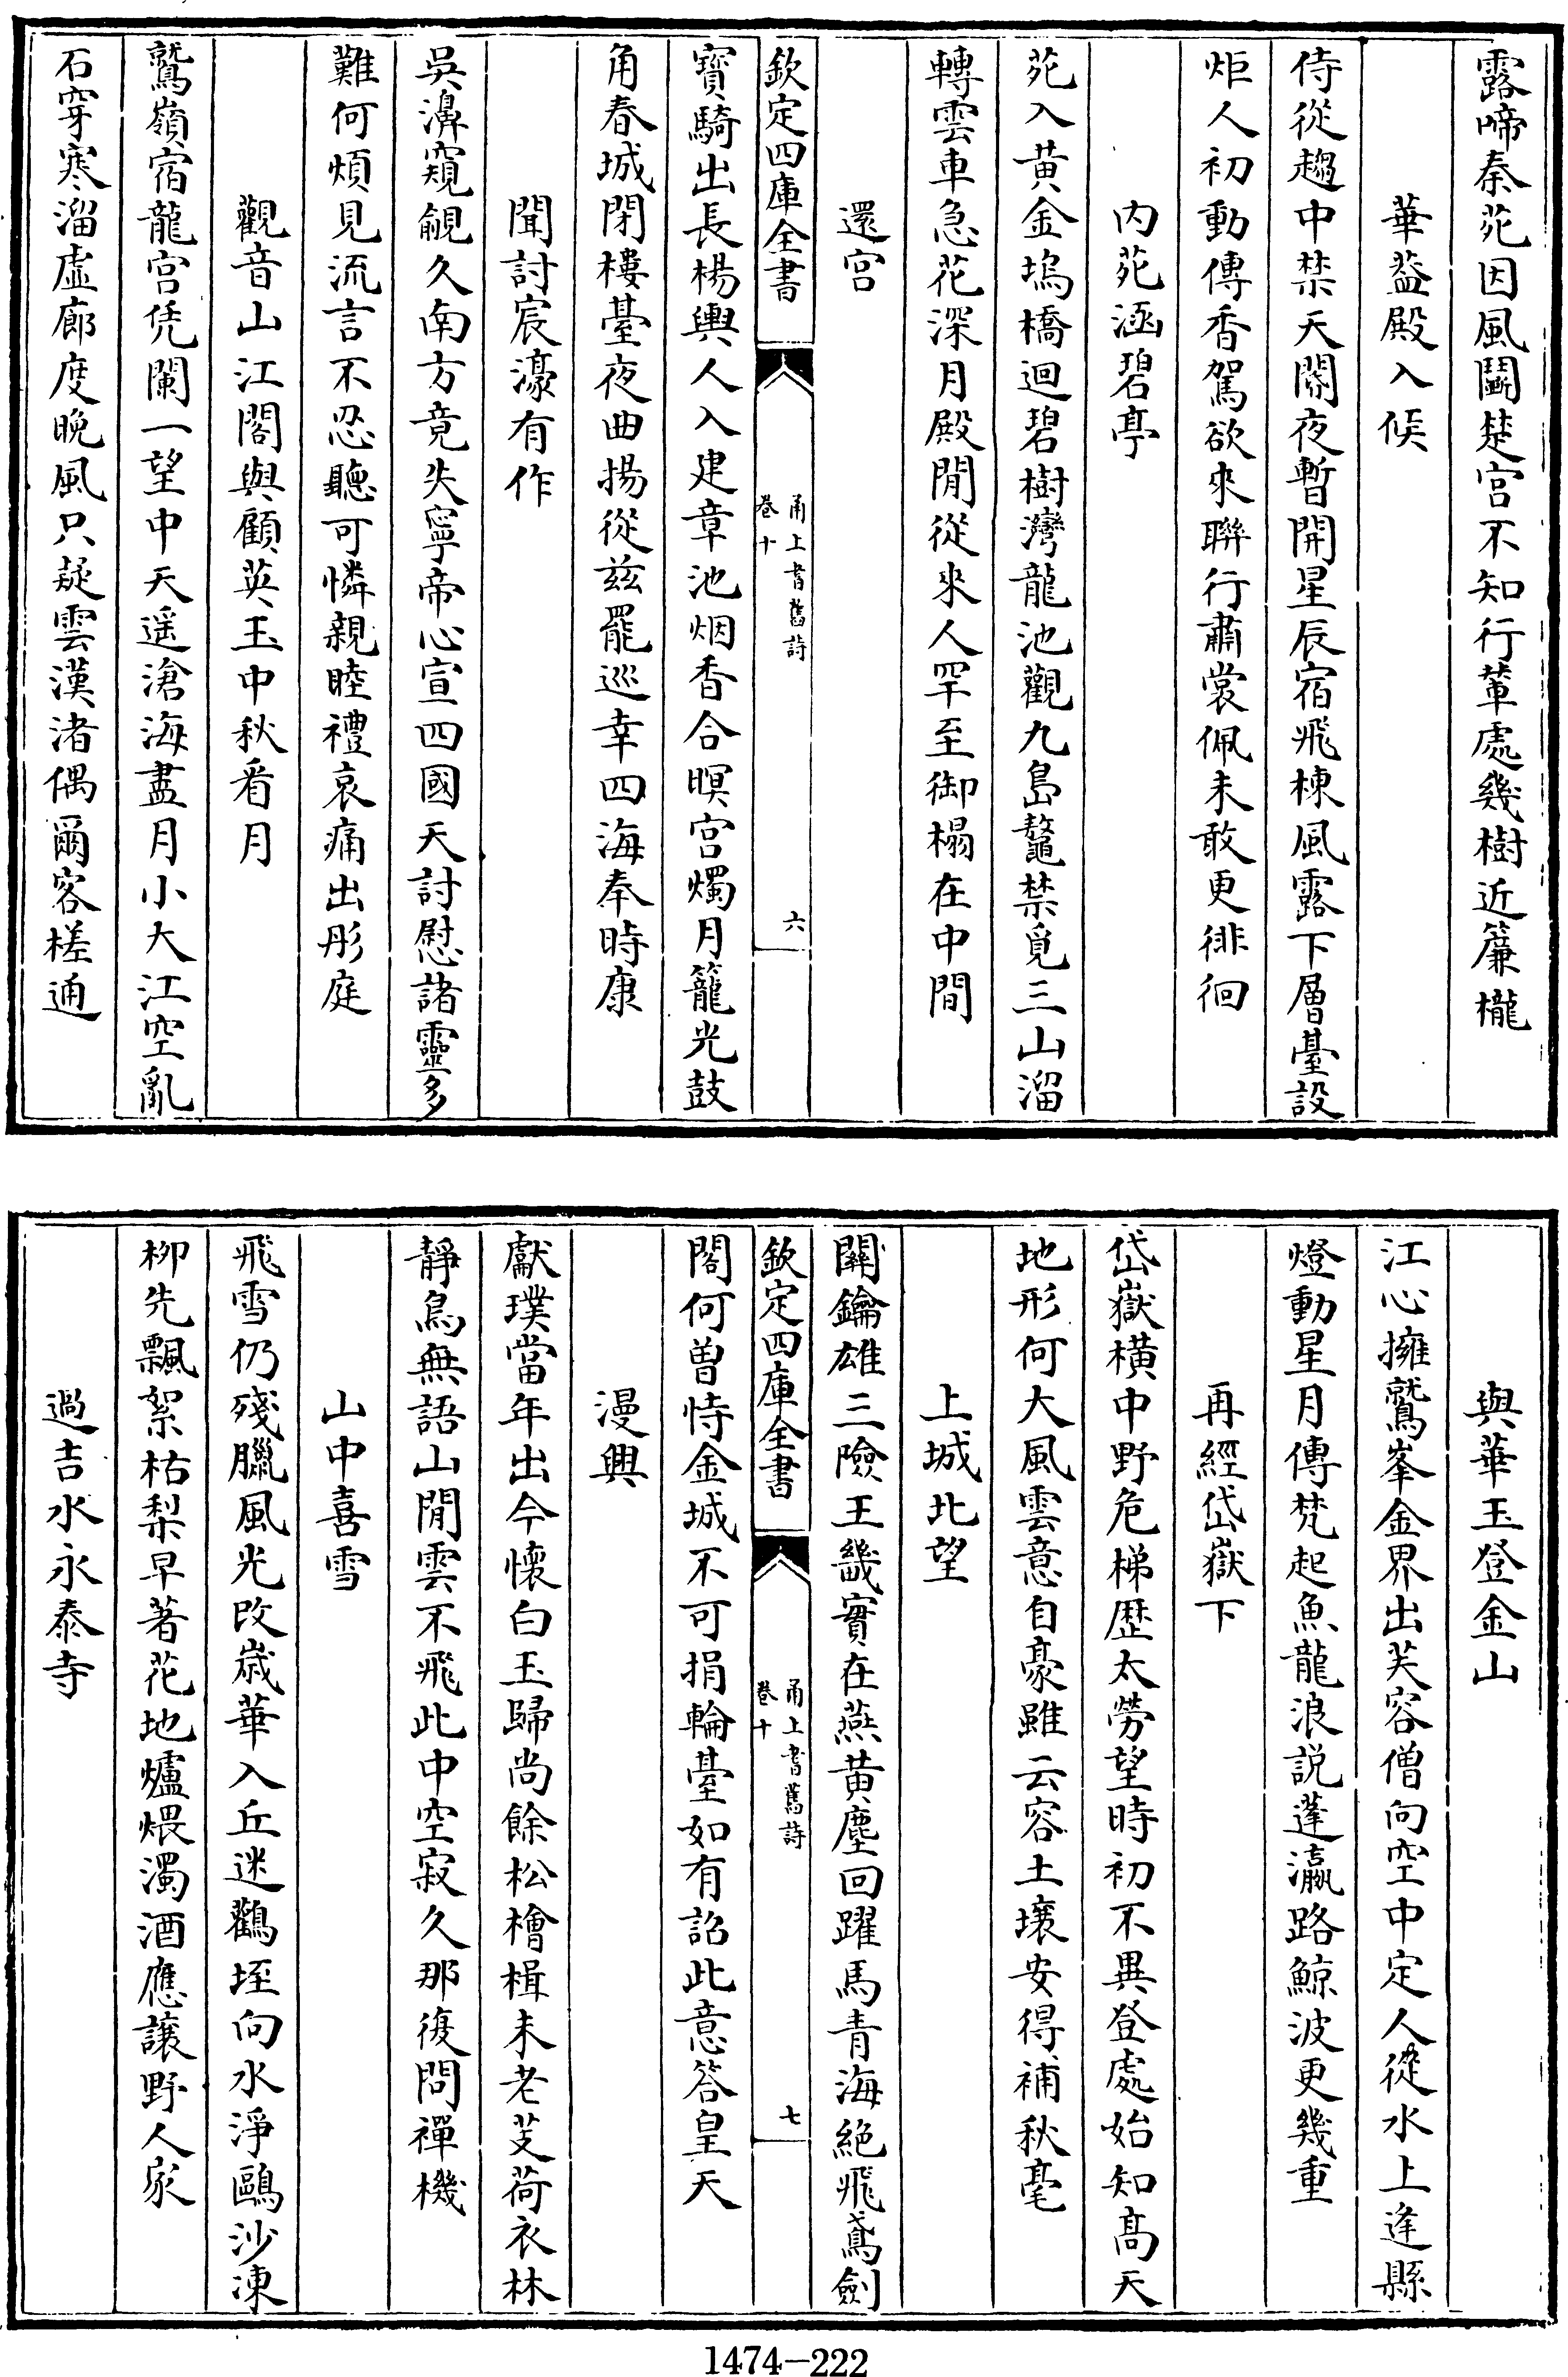 露啼秦苑因風鬭楚宫不知行輦處幾樹近簾櫳
華葢殿入候
侍從趨中禁天閽夜暫開星辰宿飛棟風露下層臺設
炬人初動傳香駕欲來聨行肅裳佩未敢更徘徊
内苑涵碧亭
苑入黄金塢橋迴碧樹灣龍池觀九島鼇禁覓三山溜
轉雲車急花深月殿閒從來人罕至御榻在中間
還宫
欽定四庫全書
甬上耆舊詩
卷十
六
寳騎出長楊輿人入建章池烟香合暝宫燭月籠光鼓
角春城閉樓臺夜曲揚從兹罷巡幸四海奉時康
聞討宸濠有作
吳濞窺覦久南方竟失寧帝心宣四國天討慰諸靈多
難何煩見流言不忍聽可憐親睦禮哀痛出彤庭
觀音山江閣與顧英玉中秋看月
鷲嶺宿龍宫凭闌一望中天遥滄海盡月小大江空亂
石穿寒溜虛廊度晚風只疑雲漢渚偶爾客槎通
與華玉登金山
江心擁鷲峯金界出芙容僧向空中定人從水上逢縣
燈動星月傳梵起魚龍浪説蓬瀛路鯨波更幾重
再經岱嶽下
岱嶽横中野危梯歴太勞望時初不異登處始知髙天
地形何大風雲意自豪雖云容土壤安得補秋毫
上城北望
關鑰雄三險王畿實在燕黄塵回躍馬青海絶飛鳶劍
欽定四庫全書
甬上耆舊詩
卷十
七
閣何曽恃金城不可捐輪臺如有詔此意答皇天
漫興
獻璞當年出今懷白玉歸尚餘松檜楫未老芰荷衣林
靜鳥無語山閒雲不飛此中空寂久那復問禪機
山中喜雪
飛雪仍殘臘風光改嵗華入丘迷鸛垤向水淨鷗沙凍
柳先飄絮枯梨早著花地爐煨濁酒應讓野人家
過吉水永泰寺
1474-222